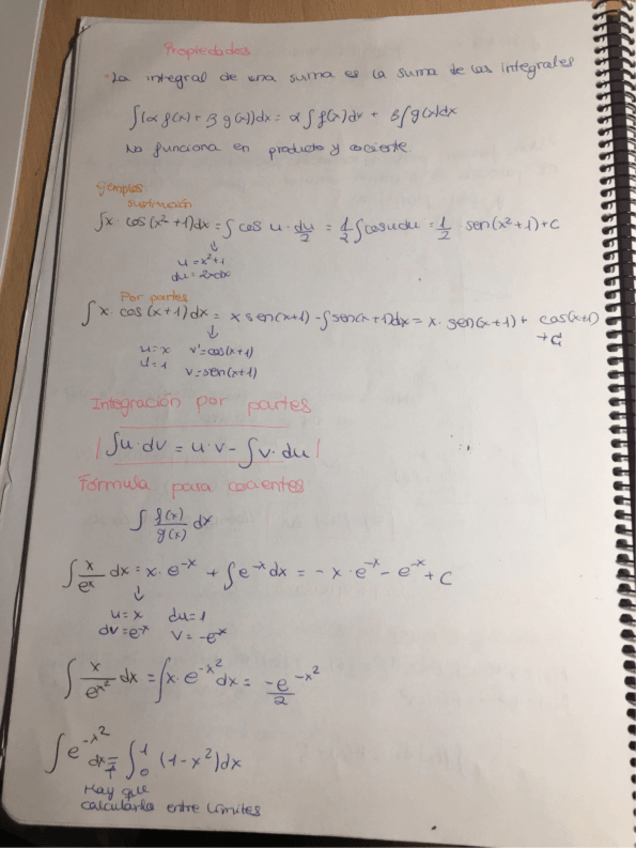 Propiedades
· La integral de una suma es la suma de las integrales
∫(α f(x) + β g(x))dx = α ∫ f(x)dx + β ∫ g(x)dx
No funciona en producto y cociente
Ejemplos
sustitución
∫x · cos(x²+1)dx = ∫ cos u · du/2 = 1/2 ∫cosudu = 1/2 sen(x²+1)+C
↓
u = x²+1
du = 2xdx
Por partes
∫ x · cos(x+1)dx = x sen(x+1) - ∫sen(x+1)dx = x · sen(x+1) + cos(x+1)
+ C
↓
u = x v' = cos(x+1)
u' = 1 v = sen(x+1)
Integración por partes
| ∫u · dv = u · v - ∫v · du |
Fórmula para cocientes
∫ f(x)/g(x) dx
∫ x/eˣ dx = x · e⁻ˣ + ∫ e⁻ˣ dx = - x · e⁻ˣ - e⁻ˣ + C
↓
u = x du = 1
dv = e⁻ˣ v = -e⁻ˣ
∫ x/e^x² dx = ∫x · e^-x² dx = -e^-x²/2
∫ e^-x² dx = ∫₀¹ (1-x²)dx
↑
Hay que
calcularla entre límites